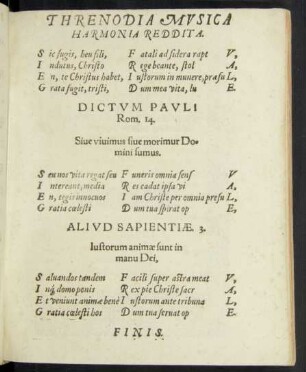 THRENODIA MVSICA
HARMONIA REDDITA.
S ic fugis, heu fili, F atali ad sidera rapt V,
I ndutus, Christo R ege beante, stol A,
E n, te Christus habet, I ustorum in munere, præsu L,
G rata fugit, tristi, D um mea vita, lu E.
DICTVM PAVLI
Rom. 14.
Siue viuimus siue morimur Do-
mini sumus.
S eu nos vita regat seu F uneris omnia sens V
I ntereant, media R es cadat ipsa vi A,
E n, regis innocuos I am Christe per omnia presu L,
G ratia cœlesti D um tua spirat op E,
ALIVD SAPIENTIÆ. 3.
Iustorum animæ sunt in
manu Dei,
S aluandos tandem F acili super astra meat V,
I nq; domo ponis R ex pie Christe sacr A,
E t veniunt animæ benè I ustorum ante tribuna L,
G ratia cœlesti hos D um tua seruat op E.
FINIS.